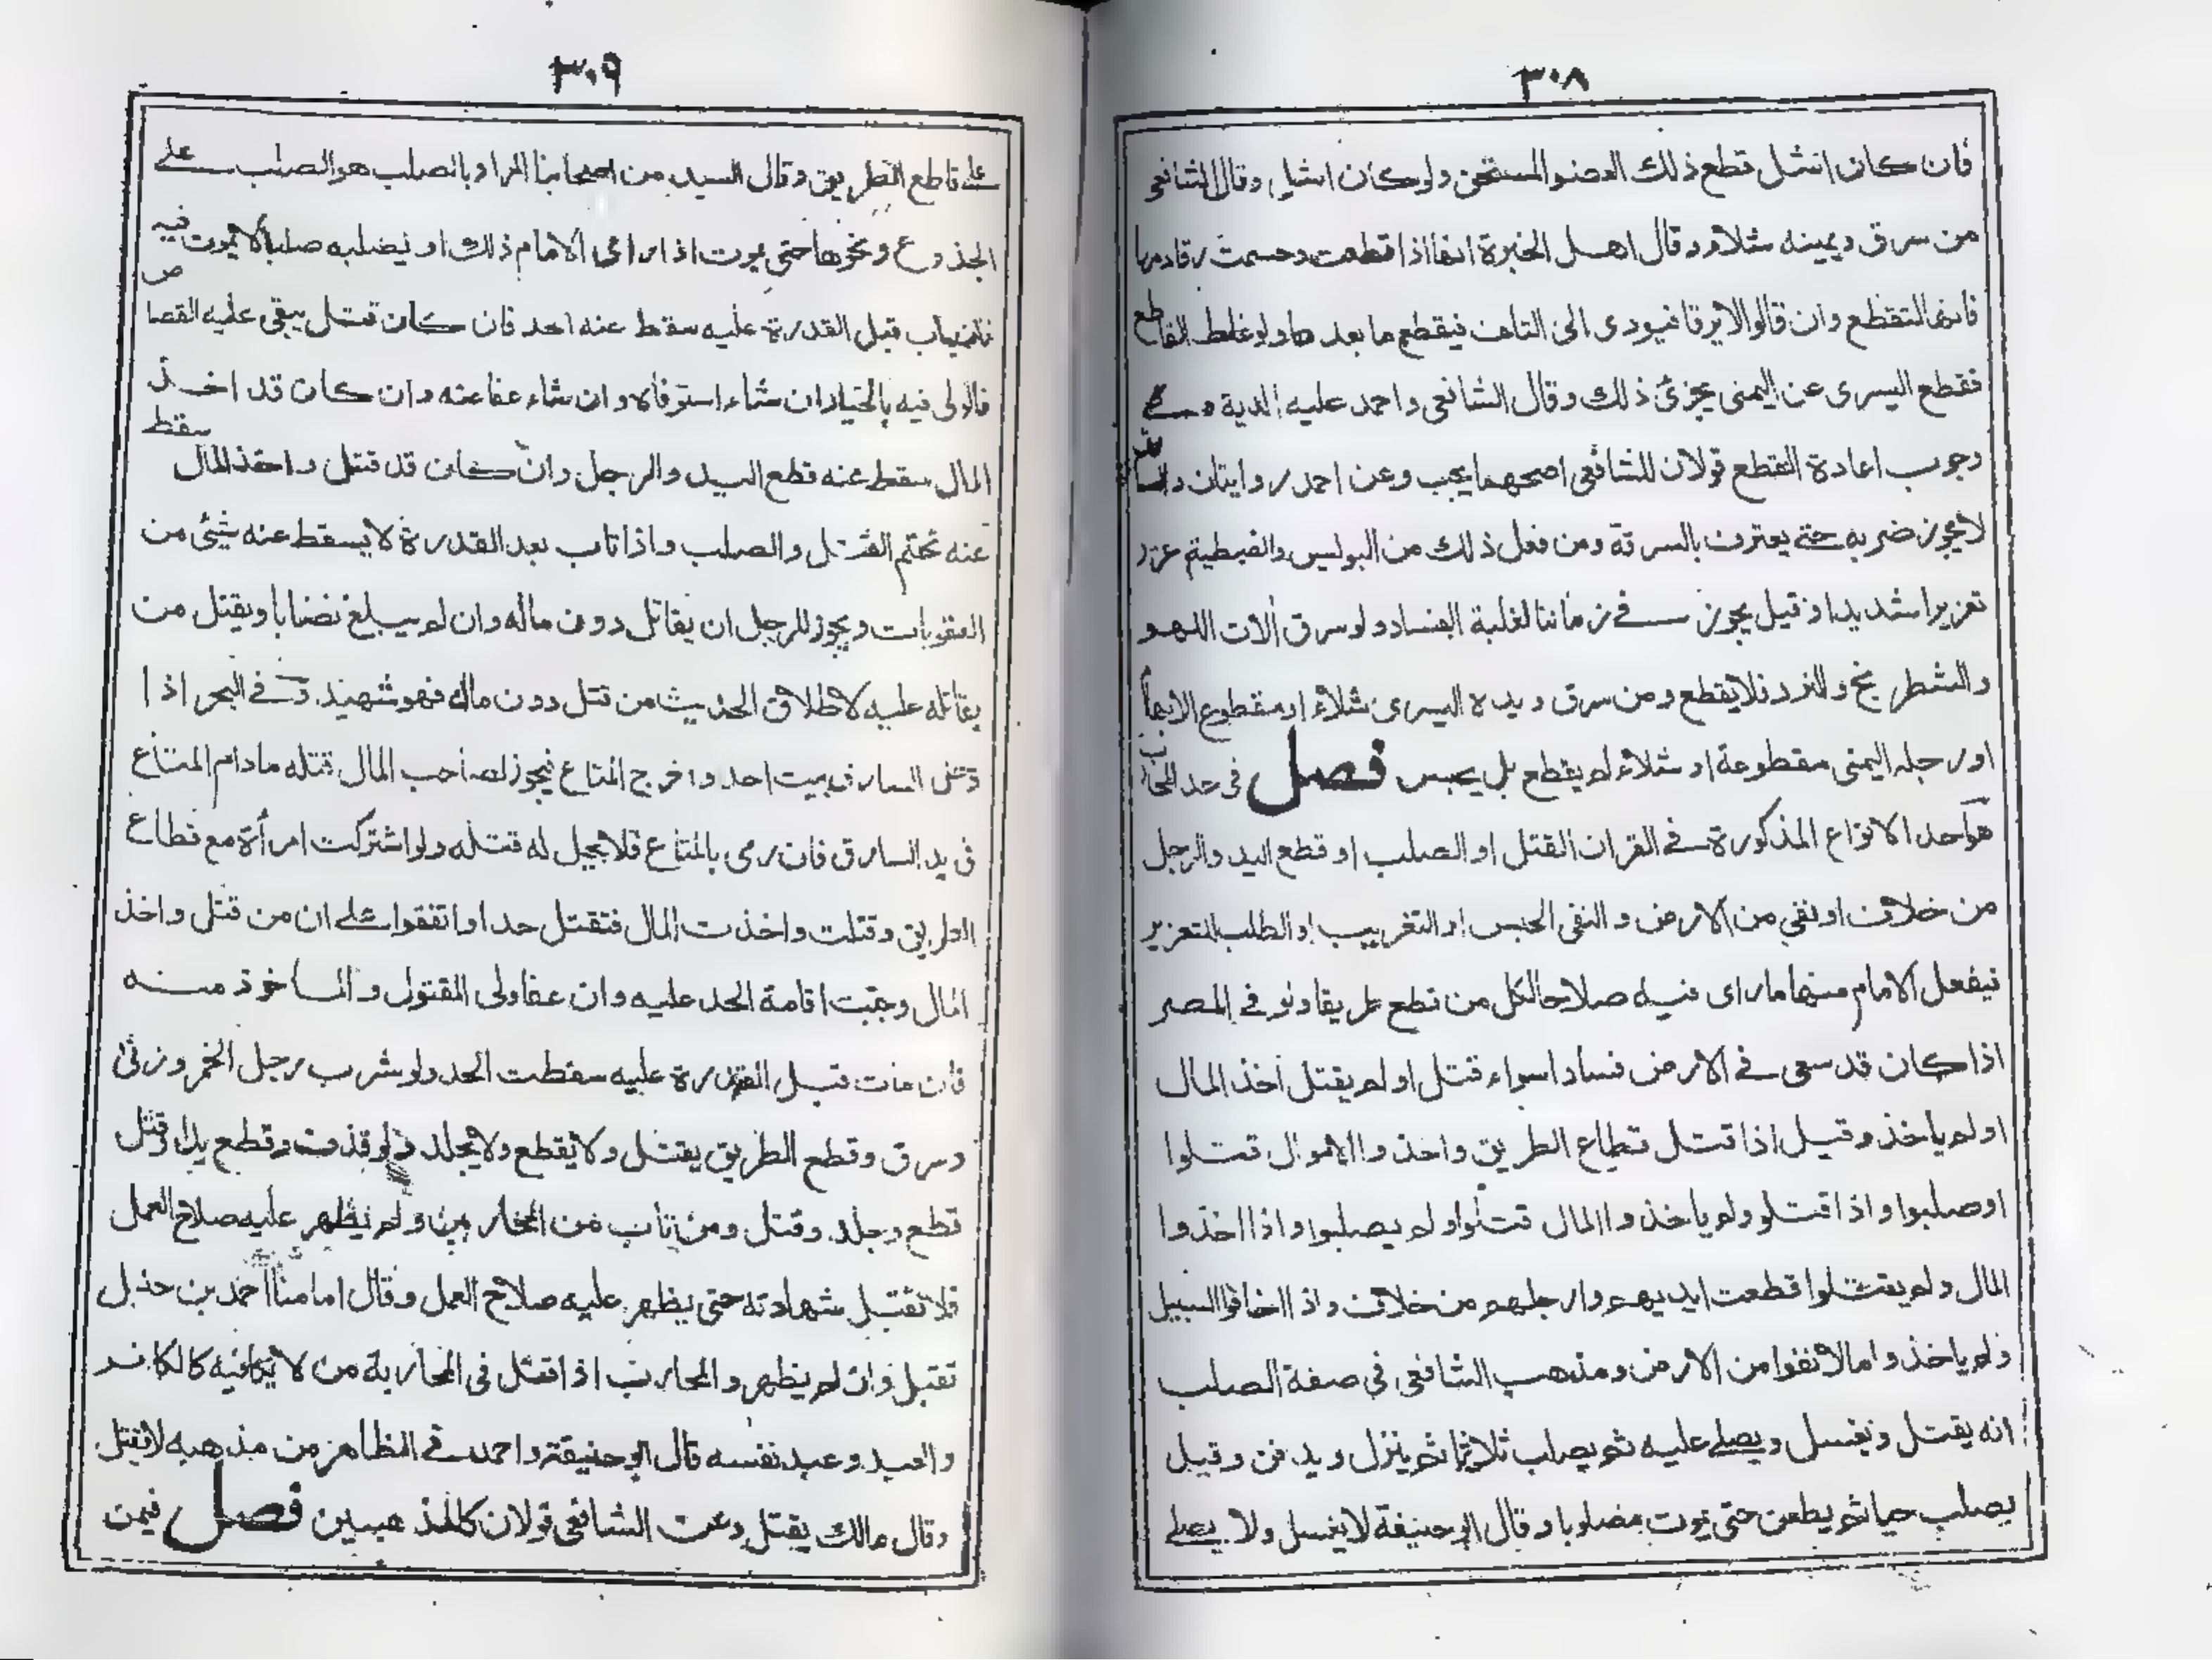 ٣٠٨
فان كان اشل قطع ذلك العضو المستحق ولو كان اشل وقال الشافعي
من سرق ويمينه شلاء وقال اهل الخبرة انها اذا قطعت وحسمت رقا دمها
فانها تقطع وان قالوا لا يرقا فيودى الى التلف فيقطع ما بعدها ولو غلط القاطع
فقطع اليسرى عن اليمنى يجزئ ذلك وقال الشافعي واحمد عليه الدية وفي
وجوب اعادة القطع قولان للشافعي اصحهما يجب وعن احمد روايتان والسارق
لا يجوز ضربه حتى يعترف بالسرقة ومن فعل ذلك من البوليس والضبطية عزر
تعزيرا شديدا وقيل يجوز في زماننا لغلبة الفساد ولو سرق الات اللهو
والشطرنج والنرد فلا يقطع ومن سرق ويده اليسرى شلاء او مقطوع الابهام
او رجله اليمنى مقطوعة او شلاء لم يقطع بل يحبس فصل في حد المحارب
هو احد الانواع المذكورة في القران القتل او الصلب او قطع اليد والرجل
من خلاف او نفي من الارض والنفى الحبس او التغريب او الطلب للتعزير
فيفعل الامام منها ما راى فيه صلاحا لكل من قطع طريقا ولو في المصر
اذا كان قد سعى في الارض فسادا سواء قتل او لم يقتل اخذ المال
او لم ياخذ وقيل اذا قتل قطاع الطريق واخذوا الاموال قتلوا
اوصلبوا واذا قتلو ولم ياخذوا المال قتلوا ولم يصلبوا واذا اخذوا
المال ولم يقتلوا قطعت ايديهم وارجلهم من خلاف واذا اخافوا السبيل
ولم ياخذوا مالا نفوا من الارض ومذهب الشافعي في صفة الصلب
انه يقتل ويغسل ويصلے عليه ثم يصلب ثلاثا ثم ينزل ويدفن وقيل
يصلب حيا ثم يطعن حتى يموت مصلوبا وقال ابو حنيفة لا يغسل ولا يصلے
٣٠٩
علے قاطع الطريق وقال السيد من اصحابنا المراد بالصلب هو الصلب علے
الجذوع ونحوها حتى يموت اذا راى الامام ذلك او يصلبه صلبا لا يموت فيه
فلمن تاب قبل القدرة عليه سقط عنه احد فان كان قتل يبقى عليه القصاص
فالولى فيه بالخيار ان شاء استوفاه وان شاء عفا عنه وان كان قد اخذ
المال سقط عنه قطع اليد والرجل وان كان قد قتل واخذ المال سقط
عنه تحتم القتل والصلب واذا تاب بعد القدرة لا يسقط عنه شيئ من
العقوبات ويجوز للرجل ان يقاتل دون ماله وان لم يبلغ نصابا ويقتل من
يقاتله عليه لاطلاق الحديث من قتل دون ماله فهو شهيد وفي البحر اذا
دخل السارق بيت احد واخرج المتاع فيجوز لصاحب المال قتله ما دام المتاع
في يد السارق فان رمى بالمتاع فلا يحل له قتله ولو اشتركت امرأة مع قطاع
الطريق وقتلت واخذت المال فتقتل حدا واتفقوا علے ان من قتل واخذ
المال وجبت اقامة الحد عليه وان عفا ولى المقتول والماخوذ منه
فان مات قبل القدرة عليه سقطت الحد ولو شرب رجل الخمر وزنى
وسرق وقطع الطريق يقتل ولا يقطع ولا يجلد ولو قذف وقطع يدا وقتل
قطع وجلد وقتل ومن تاب من المحاربين ولم يظهر عليه صلاح العمل
فلا تقبل شهادته حتى يظهر عليه صلاح العمل وقال امامنا احمد بن حنبل
تقبل وان لم يظهر والمحارب اذا قتل في المحاربة من لا يكافيه كالكافر
والعبد وعبد نفسه قال ابو حنيفة واحمد في الظاهر من مذهبه لا يقتل
وقال مالك يقتل وعن الشافعي قولان كالمذهبين فصل فيمن